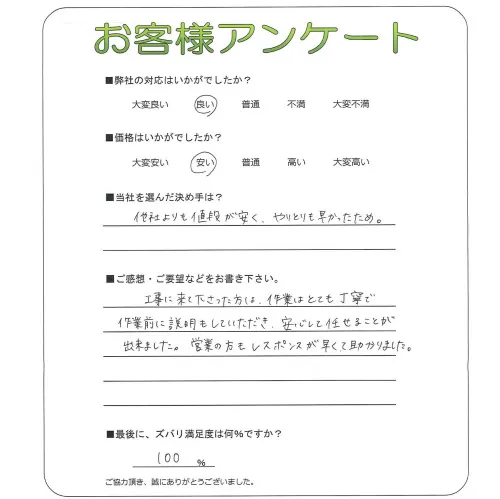 お客様アンケート
■弊社の対応はいかがでしたか？
大変良い 良い 普通 不満 大変不満
■価格はいかがでしたか？
大変安い 安い 普通 高い 大変高い
■当社を選んだ決め手は？
他社よりも値段が安く、やりとりも早かったため。
■ご感想・ご要望などをお書き下さい。
工事に来て下さった方は、作業はとても丁寧で
作業前に説明もしていただき、安心して任せることが
出来ました。営業の方もレスポンスが早くて助かりました。
■最後に、ズバリ満足度は何%ですか？
100 %
ご協力頂き、誠にありがとうございました。